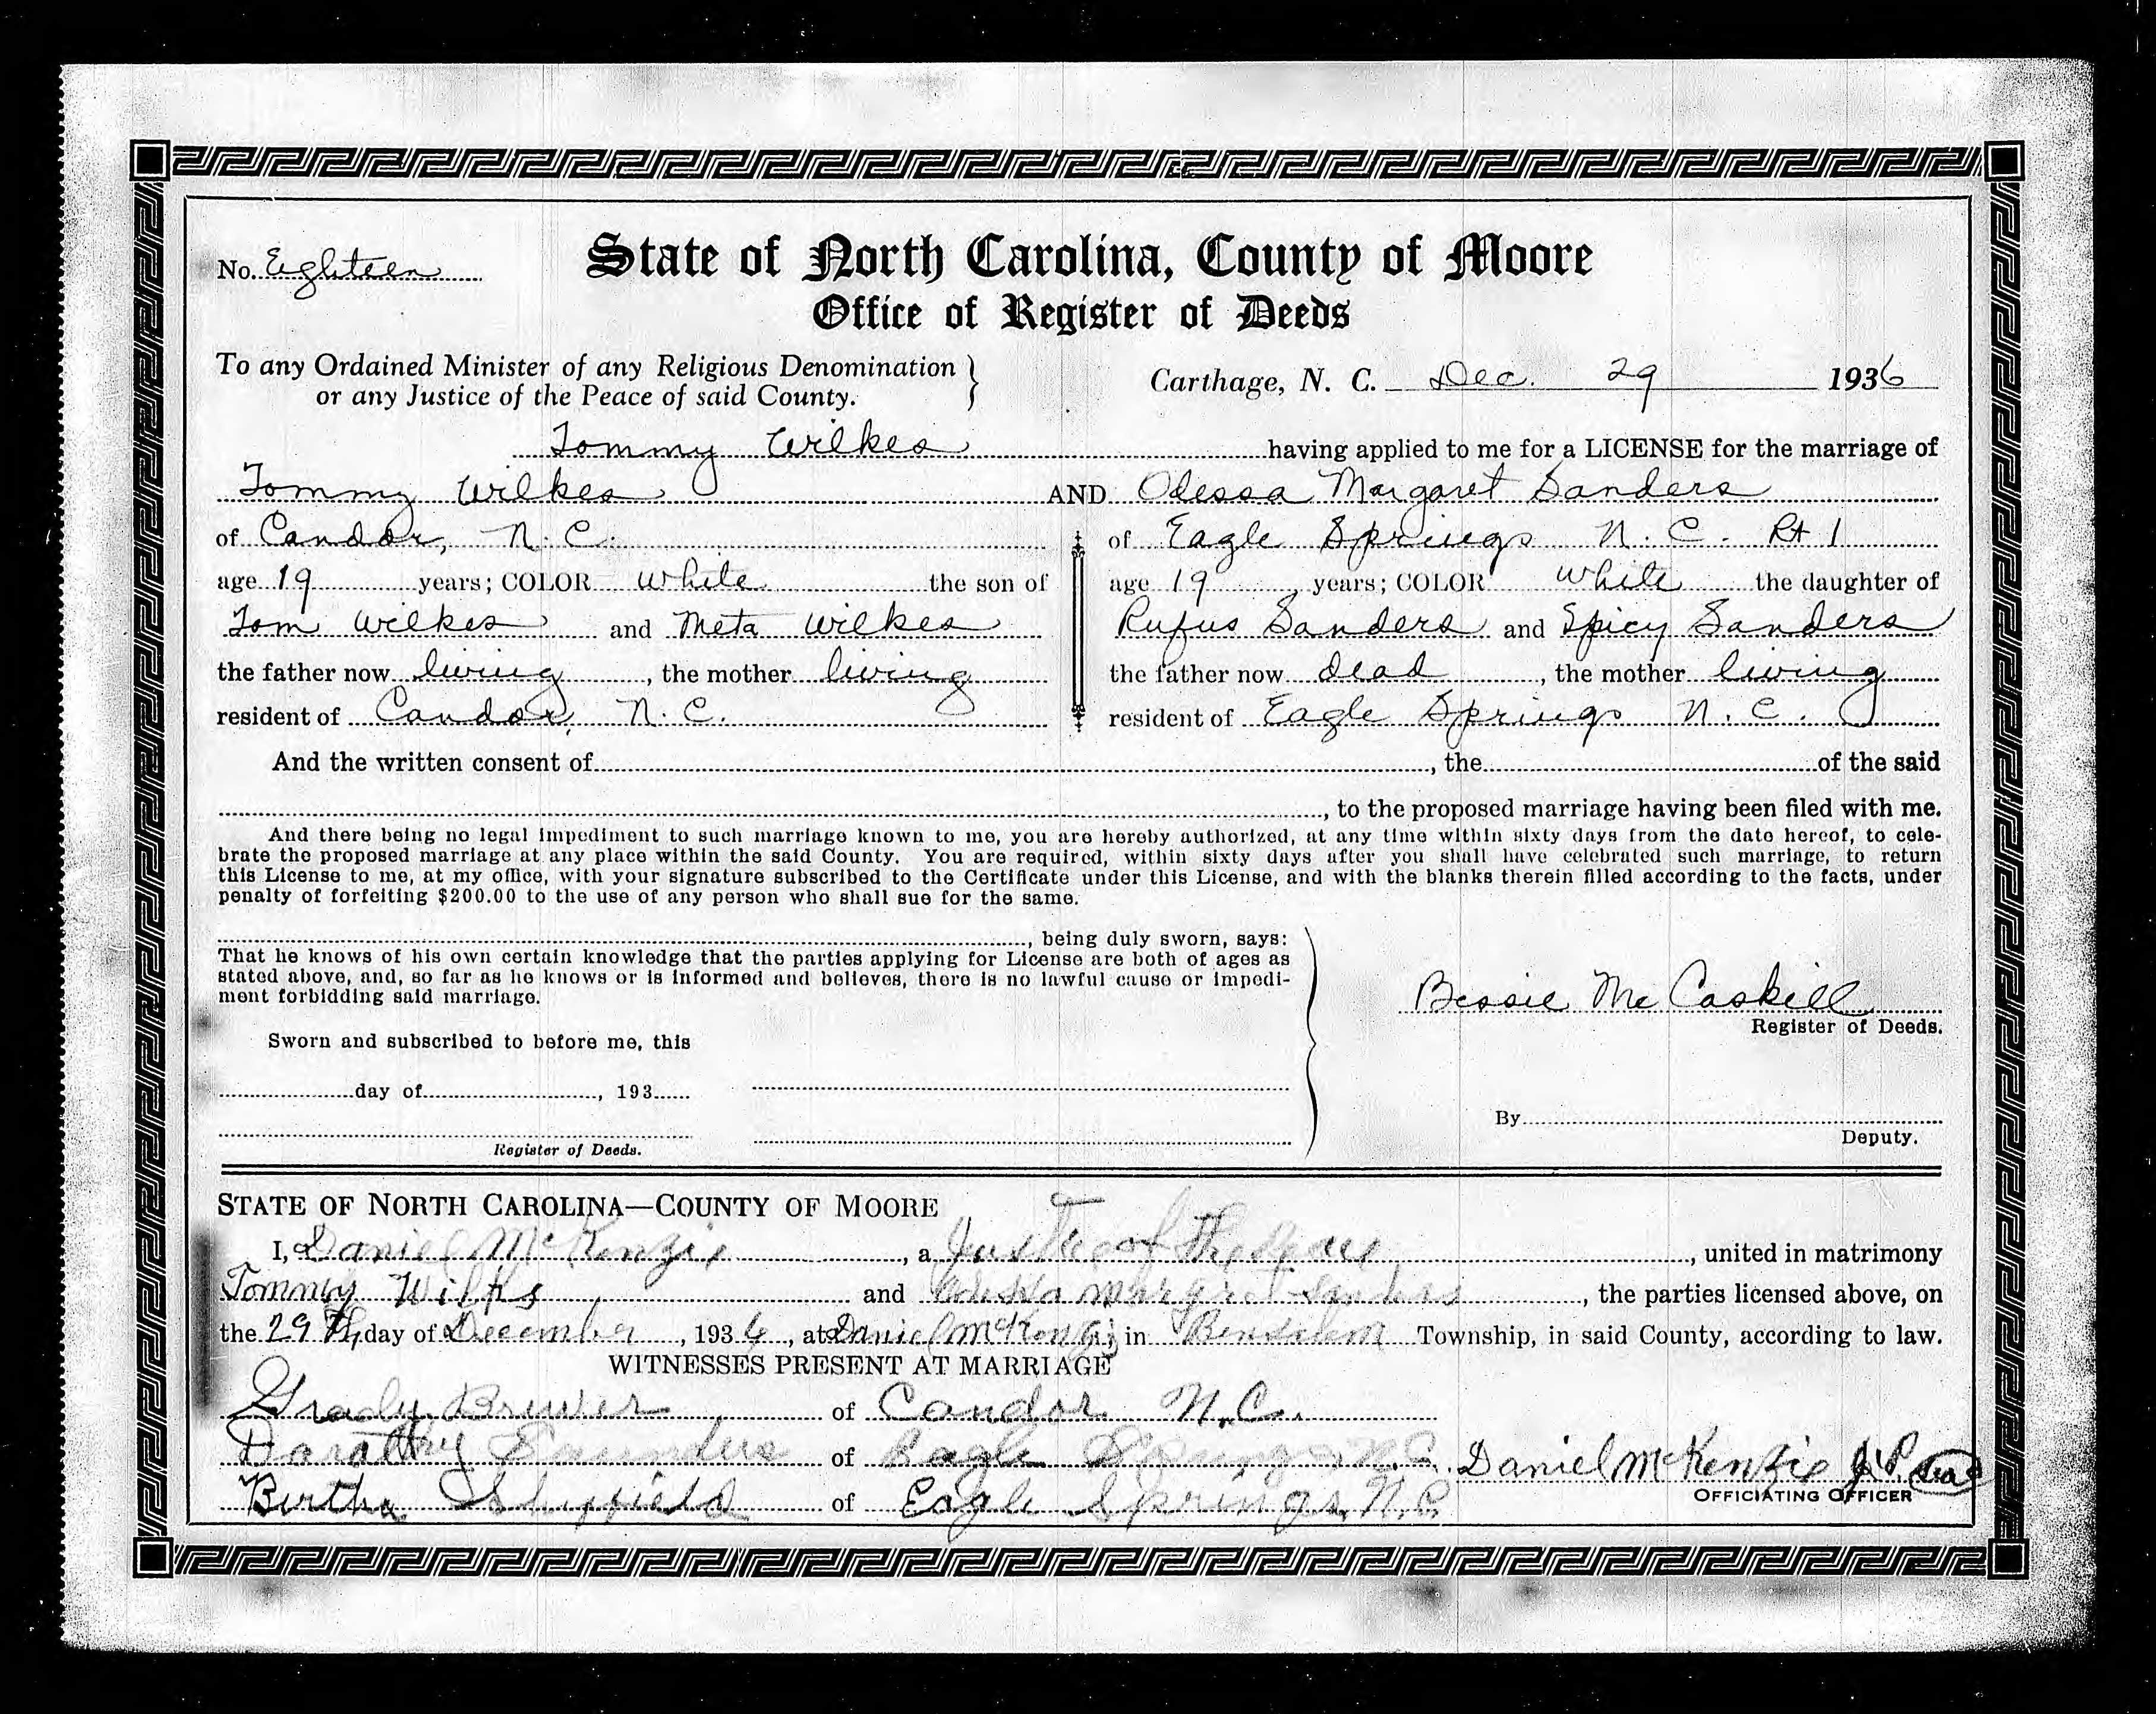 No. Eighteen
State of North Carolina, County of Moore
Office of Register of Deeds
To any Ordained Minister of any Religious Denomination
or any Justice of the Peace of said County.
Carthage, N. C. Dec. 29 1936
Tommy Wilkes having applied to me for a LICENSE for the marriage of
Tommy Wilkes AND Odessa Margaret Sanders
of Candor, N. C. of Eagle Springs N. C. Rt 1
age 19 years; COLOR White the son of age 19 years; COLOR White the daughter of
Tom Wilkes and Meta Wilkes Rufus Sanders and Spicy Sanders
the father now living, the mother living the father now dead, the mother living
resident of Candor, N. C. resident of Eagle Springs N. C.
And the written consent of, the of the said
, to the proposed marriage having been filed with me.
And there being no legal impediment to such marriage known to me, you are hereby authorized, at any time within sixty days from the date hereof, to cele-
brate the proposed marriage at any place within the said County. You are required, within sixty days after you shall have celebrated such marriage, to return
this License to me, at my office, with your signature subscribed to the Certificate under this License, and with the blanks therein filled according to the facts, under
penalty of forfeiting $200.00 to the use of any person who shall sue for the same.
, being duly sworn, says:
That he knows of his own certain knowledge that the parties applying for License are both of ages as
stated above, and, so far as he knows or is informed and believes, there is no lawful cause or impedi-
ment forbidding said marriage.
Bessie McCaskill
Register of Deeds.
Sworn and subscribed to before me, this
day of, 193
By
Deputy.
Register of Deeds.
STATE OF NORTH CAROLINA—COUNTY OF MOORE
I, Daniel McKenzie, a Justice of the Peace, united in matrimony
Tommy Wilks and Margret Sanders, the parties licensed above, on
the 29th day of December, 1936, at Daniel McKenzie in Bensalem Township, in said County, according to law.
WITNESSES PRESENT AT MARRIAGE
Grady Brewer of Candor N.C.
Dorothy Saunders of Eagle Springs N.C.
Daniel McKenzie J.P. Seal
Bertha Sheffield of Eagle Springs N.C.
OFFICIATING OFFICER